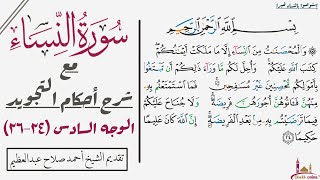 سورة النساء
مع
شرح أحكام التجويد
الوجه السادس (٢٤-٢٦)
تقديم الشيخ أحمد صلاح عبدالعظيم
بسم الله الرحمن الرحيم
والمحصنات من النساء إلا ما ملكت أيمانكم
كتاب الله عليكم وأحل لكم ما وراء ذلكم أن تبتغوا
بأموالكم محصنين غير مسافحين فما استمتعتم به
منهن فآتوهن أجورهن فريضة ولا جناح عليكم
فيما تراضيتم به من بعد الفريضة إن الله كان عليما
حكيما ٢٤